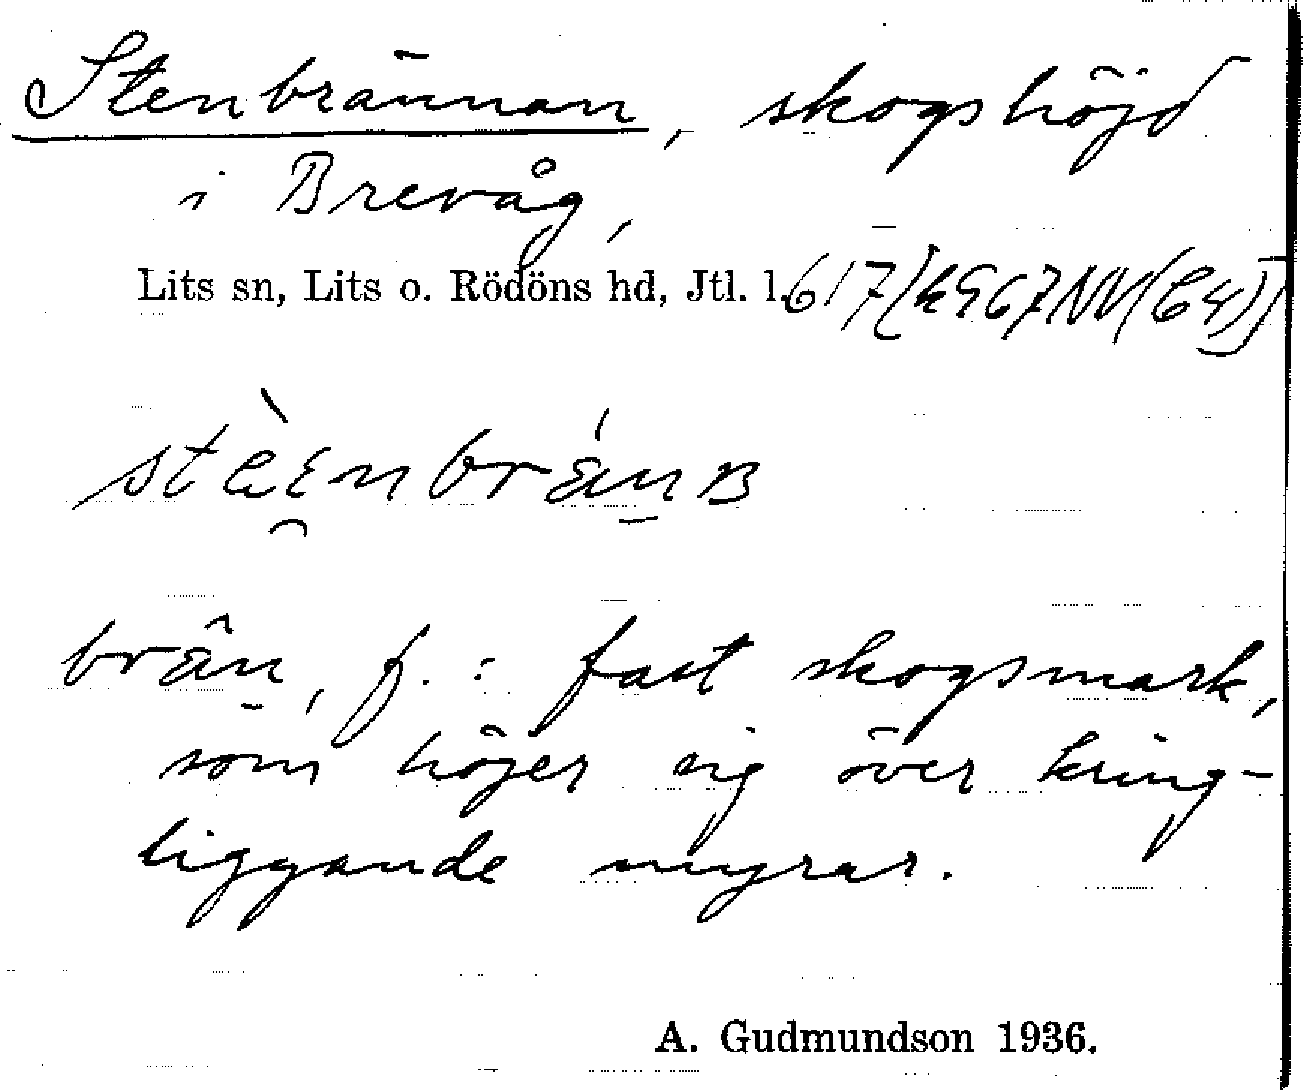 Stenbrännan, skogshöjd
i Brevåg,
Lits sn, Lits o. Rödöns hd, Jtl. l.
brän, f. : fast skogsmark,
som höjer sig över kring-
liggande myrar.
A. Gudmundson 1936.